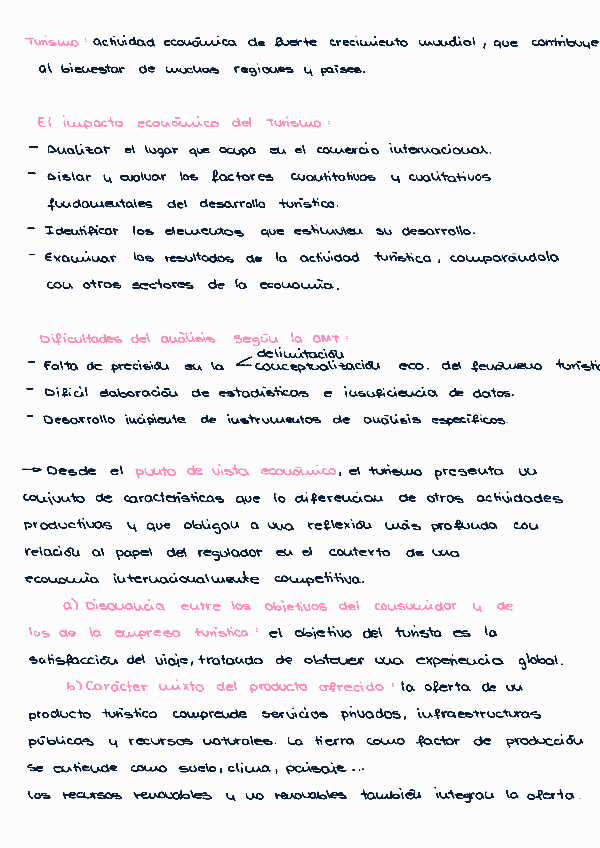 Turismo: actividad económica de fuerte crecimiento mundial, que contribuye
al bienestar de muchas regiones y países.
El impacto económico del turismo:
- Analizar el lugar que ocupa en el comercio internacional.
- Aislar y evaluar los factores cuantitativos y cualitativos
fundamentales del desarrollo turístico.
- Identificar los elementos que estimulen su desarrollo.
- Examinar los resultados de la actividad turística, comparándola
con otros sectores de la economía.
Dificultades del análisis según la OMT:
delimitación
- Falta de precisión en la < conceptualización eco. del fenómeno
- Difícil elaboración de estadísticas e insuficiencia de datos.
- Desarrollo incipiente de instrumentos de análisis específicos.
→ Desde el punto de vista económico, el turismo presenta un
conjunto de características que lo diferencian de otras actividades
productivas y que obligan a una reflexión más profunda con
relación al papel del regulador en el contexto de una
economía internacionalmente competitiva.
a) Disonancia entre los objetivos del consumidor y de
los de la empresa turística: el objetivo del turista es la
satisfacción del viaje, tratando de obtener una experiencia global.
b) Carácter mixto del producto ofrecido: la oferta de un
producto turístico comprende servicios privados, infraestructuras
públicas y recursos naturales. La tierra como factor de producción
se entiende como suelo, clima, paisaje...
Los recursos renovables y no renovables también integran la oferta.